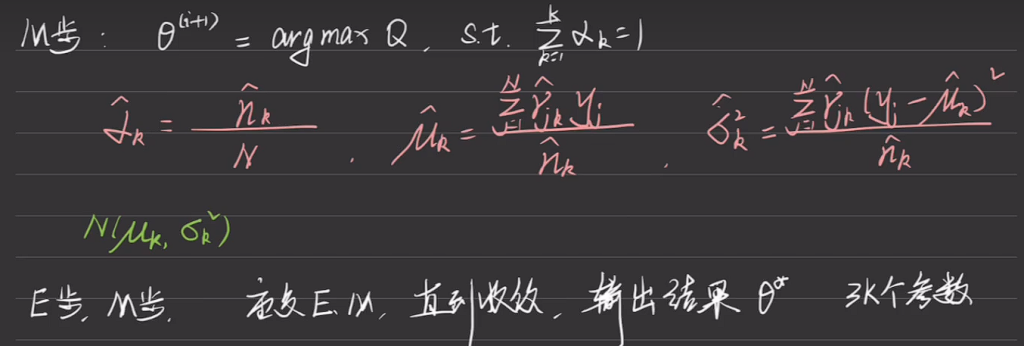 M步: θ^(i+1) = arg max Q, s.t. Σ_{k=1}^{K} α_k = 1
α̂_k = n̂_k / N , μ̂_k = Σ_{j=1}^{N} γ̂_{jk} y_j / n̂_k , σ̂_k^2 = Σ_{j=1}^{N} γ̂_{jk} (y_j − μ̂_k)^2 / n̂_k
N(μ_k, σ_k^2)
E步, M步, 重复E.M, 直到收敛, 输出结果 θ* 3K个参数